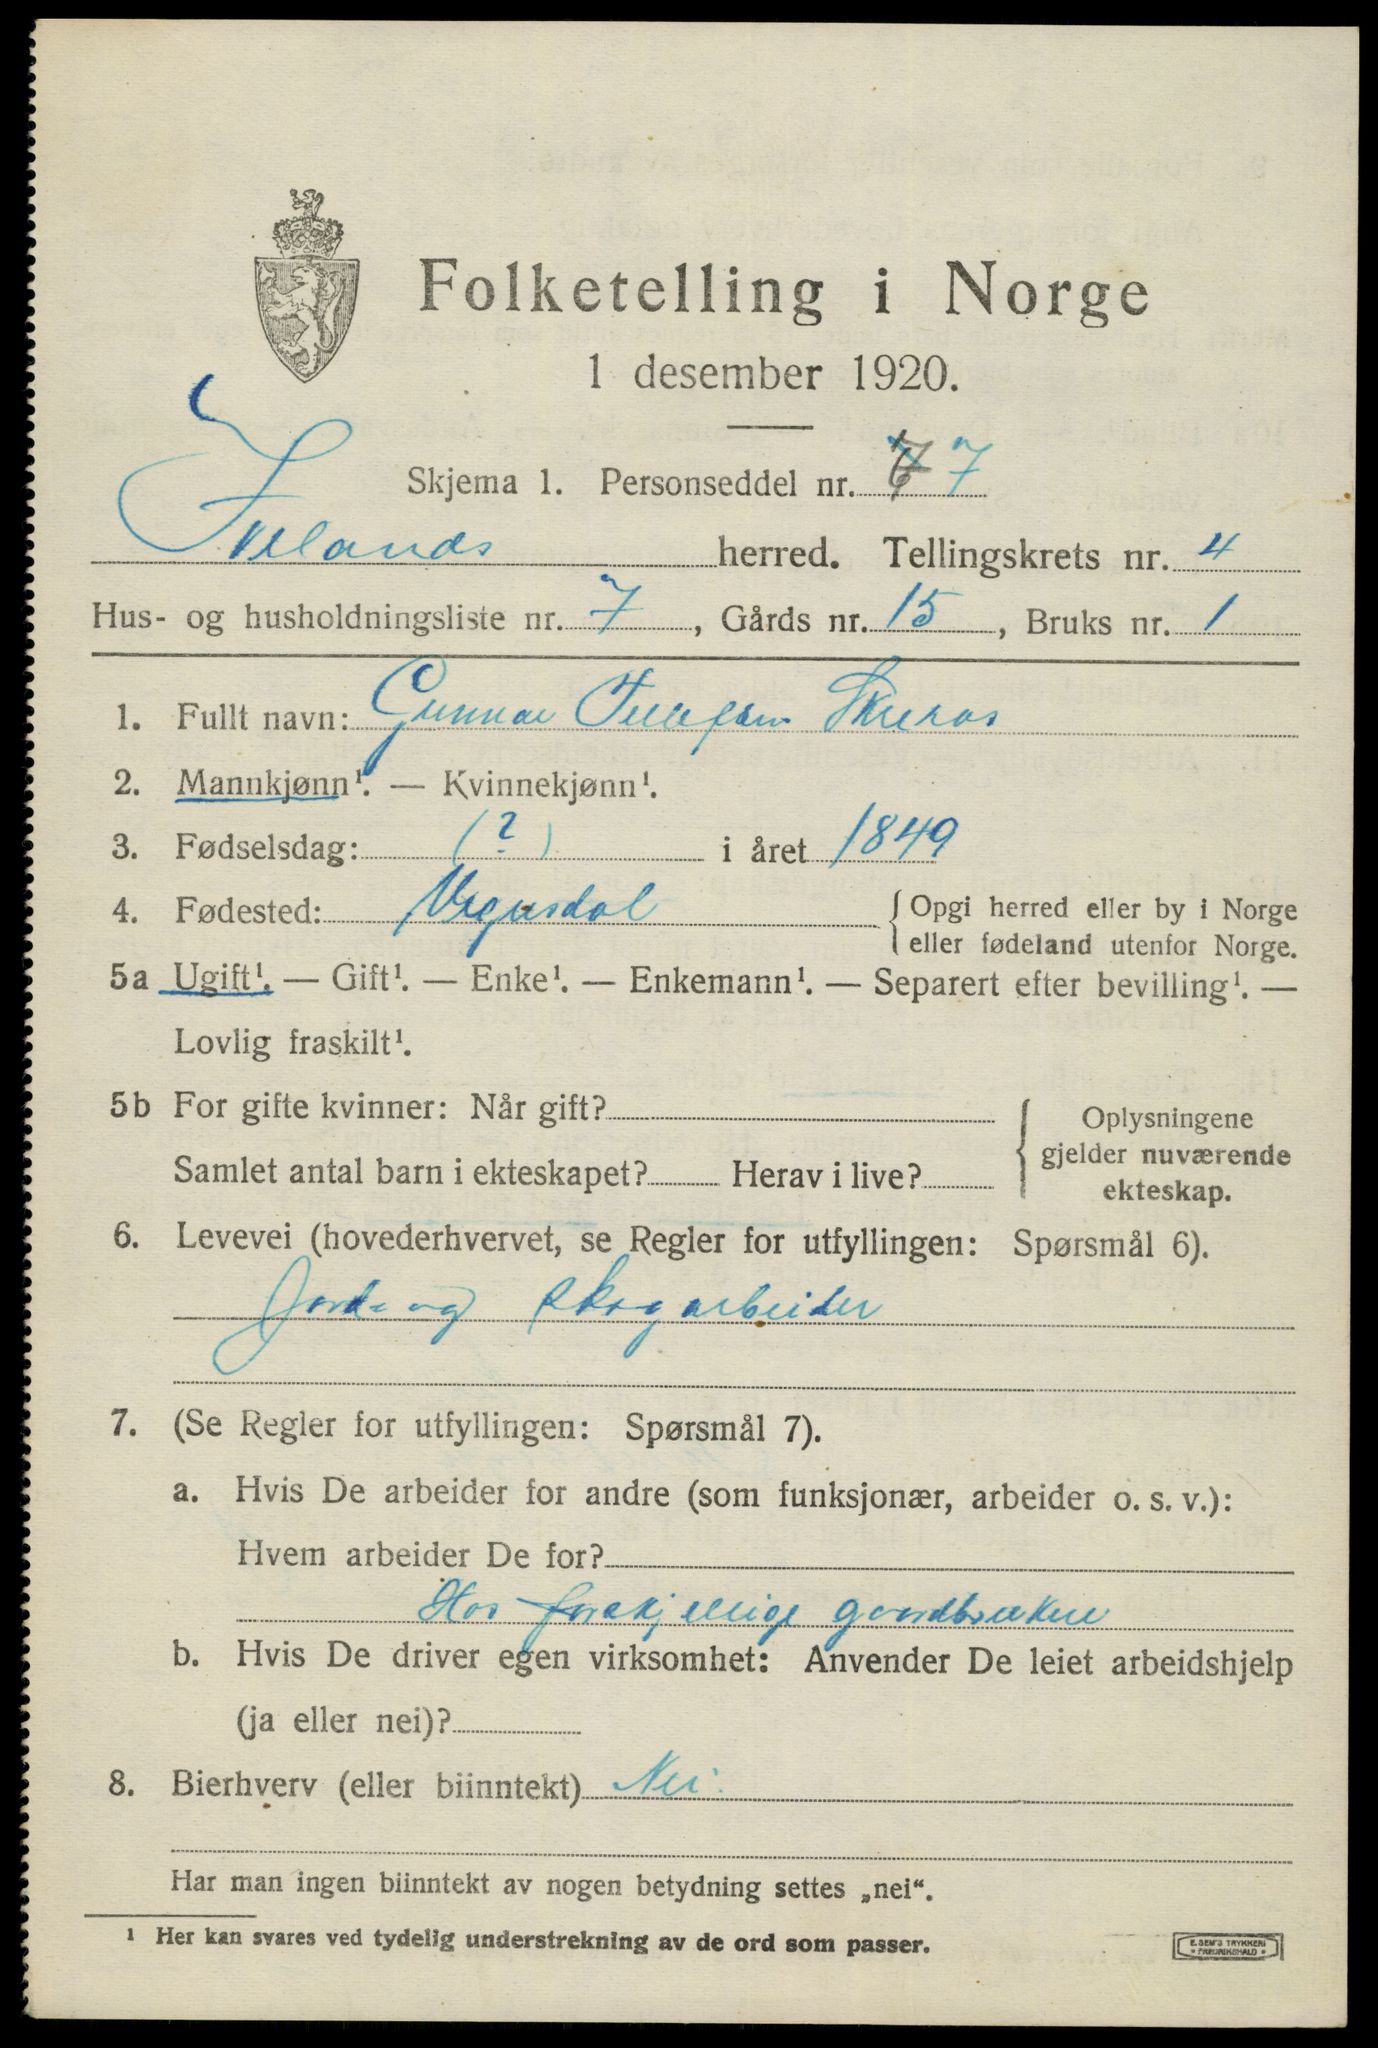 Folketelling i Norge
1 desember 1920.
Skjema 1. Personseddel nr. 7
Ivelands herred. Tellingskrets nr. 4
Hus- og husholdningsliste nr. 7, Gårds nr. 15, Bruks nr. 1
1. Fullt navn: Gunnar Tellefsen Skreros
2. Mannkjønn¹. — Kvinnekjønn¹.
3. Fødselsdag: (?) i året 1849
4. Fødested: Vegusdal
{ Opgi herred eller by i Norge
eller fødeland utenfor Norge.
5a Ugift¹. — Gift¹. — Enke¹. — Enkemann¹. — Separert efter bevilling¹. —
Lovlig fraskilt¹.
5b For gifte kvinner: Når gift?
Samlet antal barn i ekteskapet? Herav i live?
{ Oplysningene
gjelder nuværende
ekteskap.
6. Levevei (hovederhvervet, se Regler for utfyllingen: Spørsmål 6).
Jord- og skogarbeider
7. (Se Regler for utfyllingen: Spørsmål 7).
a. Hvis De arbeider for andre (som funksjonær, arbeider o. s. v.):
Hvem arbeider De for?
Hos forskjellige gaardbrukere
b. Hvis De driver egen virksomhet: Anvender De leiet arbeidshjelp
(ja eller nei)?
8. Bierhverv (eller biinntekt) Nei.
Har man ingen biinntekt av nogen betydning settes „nei“.
¹ Her kan svares ved tydelig understrekning av de ord som passer.
E. SEM'S TRYKKERI
• FREDRIKSHALD •